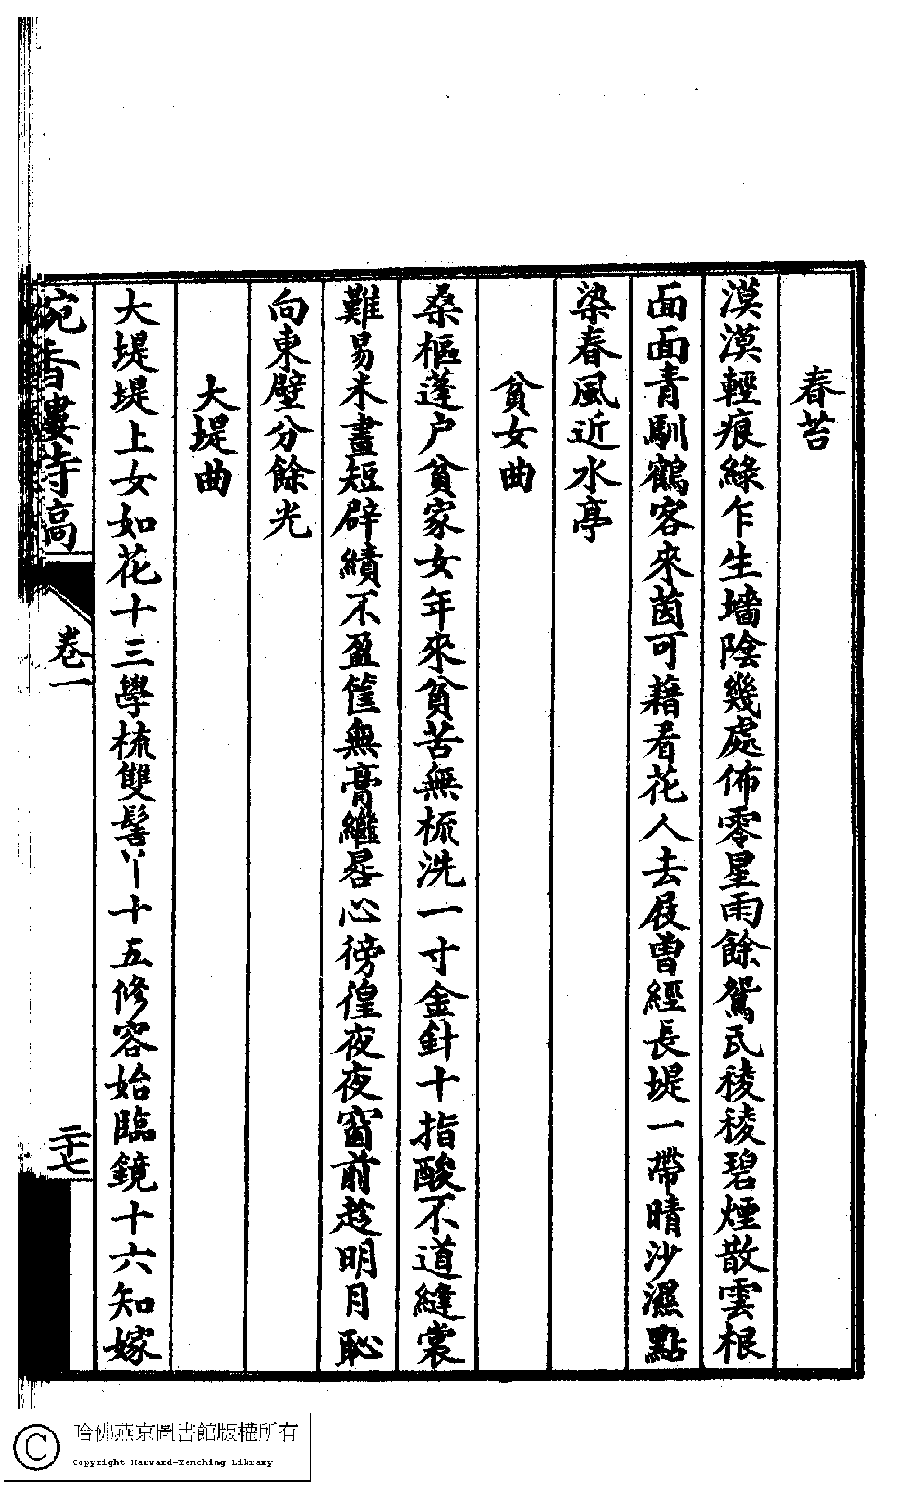 春苔
漠漠輕痕綠乍生墻陰幾處佈零星雨餘鴛瓦稜稜碧煙散雲根
面面青馴鶴客來茵可藉看花人去屐曾經長堤一帶晴沙濕點
染春風近水亭
貧女曲
桑樞蓬户貧家女年來貧苦無梳洗一寸金針十指酸不道縫裳
難易米晝短辟績不盈筐無膏繼晷心徬徨夜夜窗前趁明月恥
向東壁分餘光
大堤曲
大堤堤上女如花十三學梳雙髻丫十五修容始臨鏡十六知嫁
香樓詩稿
卷一
二十七
哈佛燕京圖書館版權所有
Copyright Harvard-Yenching Library